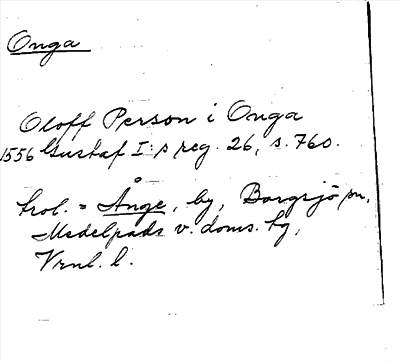 Onga
Oloff Person i Onga
1556 Gustaf I:s reg. 26, s. 760.
trol. = Ånge, by, Borgsjö sn,
Medelpads v. doms. hg,
Vrnl. l.